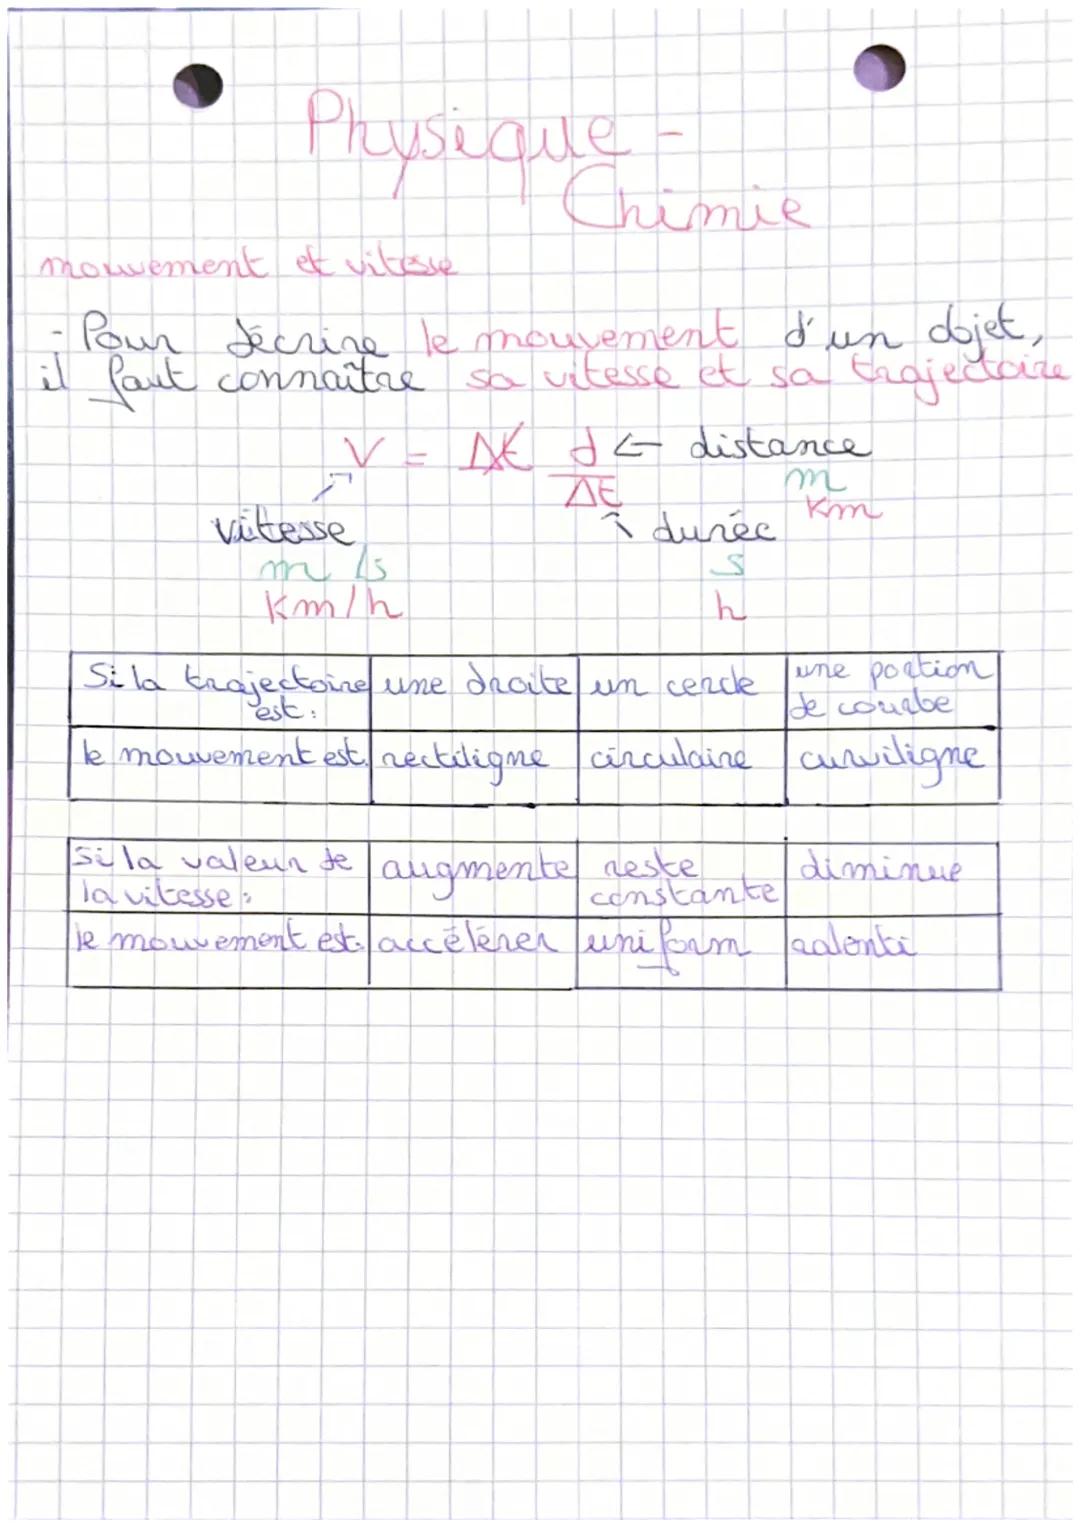 Physique -
Chimie
mouvement et vitesse
- Pour décrire le mouvement d'un objet,
il faut connaître sa vitesse et sa trajectoire
V = Δt d ← distance
Δt
m
km
vitesse
↑ durée
m/s
s
Km/h
h
Si la trajectoire est: une droite un cercle une portion de courbe
le mouvement est. rectiligne circulaire curviligne
Si la valeur de la vitesse: augmente reste constante diminue
le mouvement est. accélérer uniform ralenti